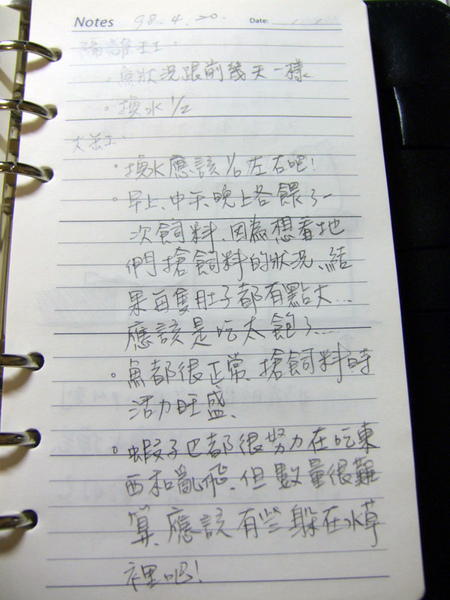 Notes 98.4.20. Date: / /
隔離缸:
。魚狀況跟前幾天一樣
。換水 1/2
大缸:
。換水應該 1/6 左右吧!
。早上、中午、晚上各餵了一
次飼料、因為想看地
們搶飼料的狀況、結
果每隻肚子都有點大...
應該是吃太飽了...
。魚都很正常、搶飼料時
活力旺盛、
。蝦子也都很努力在吃東
西和亂飛、但數量很難
算、應該有些躲在水草
裡吧!